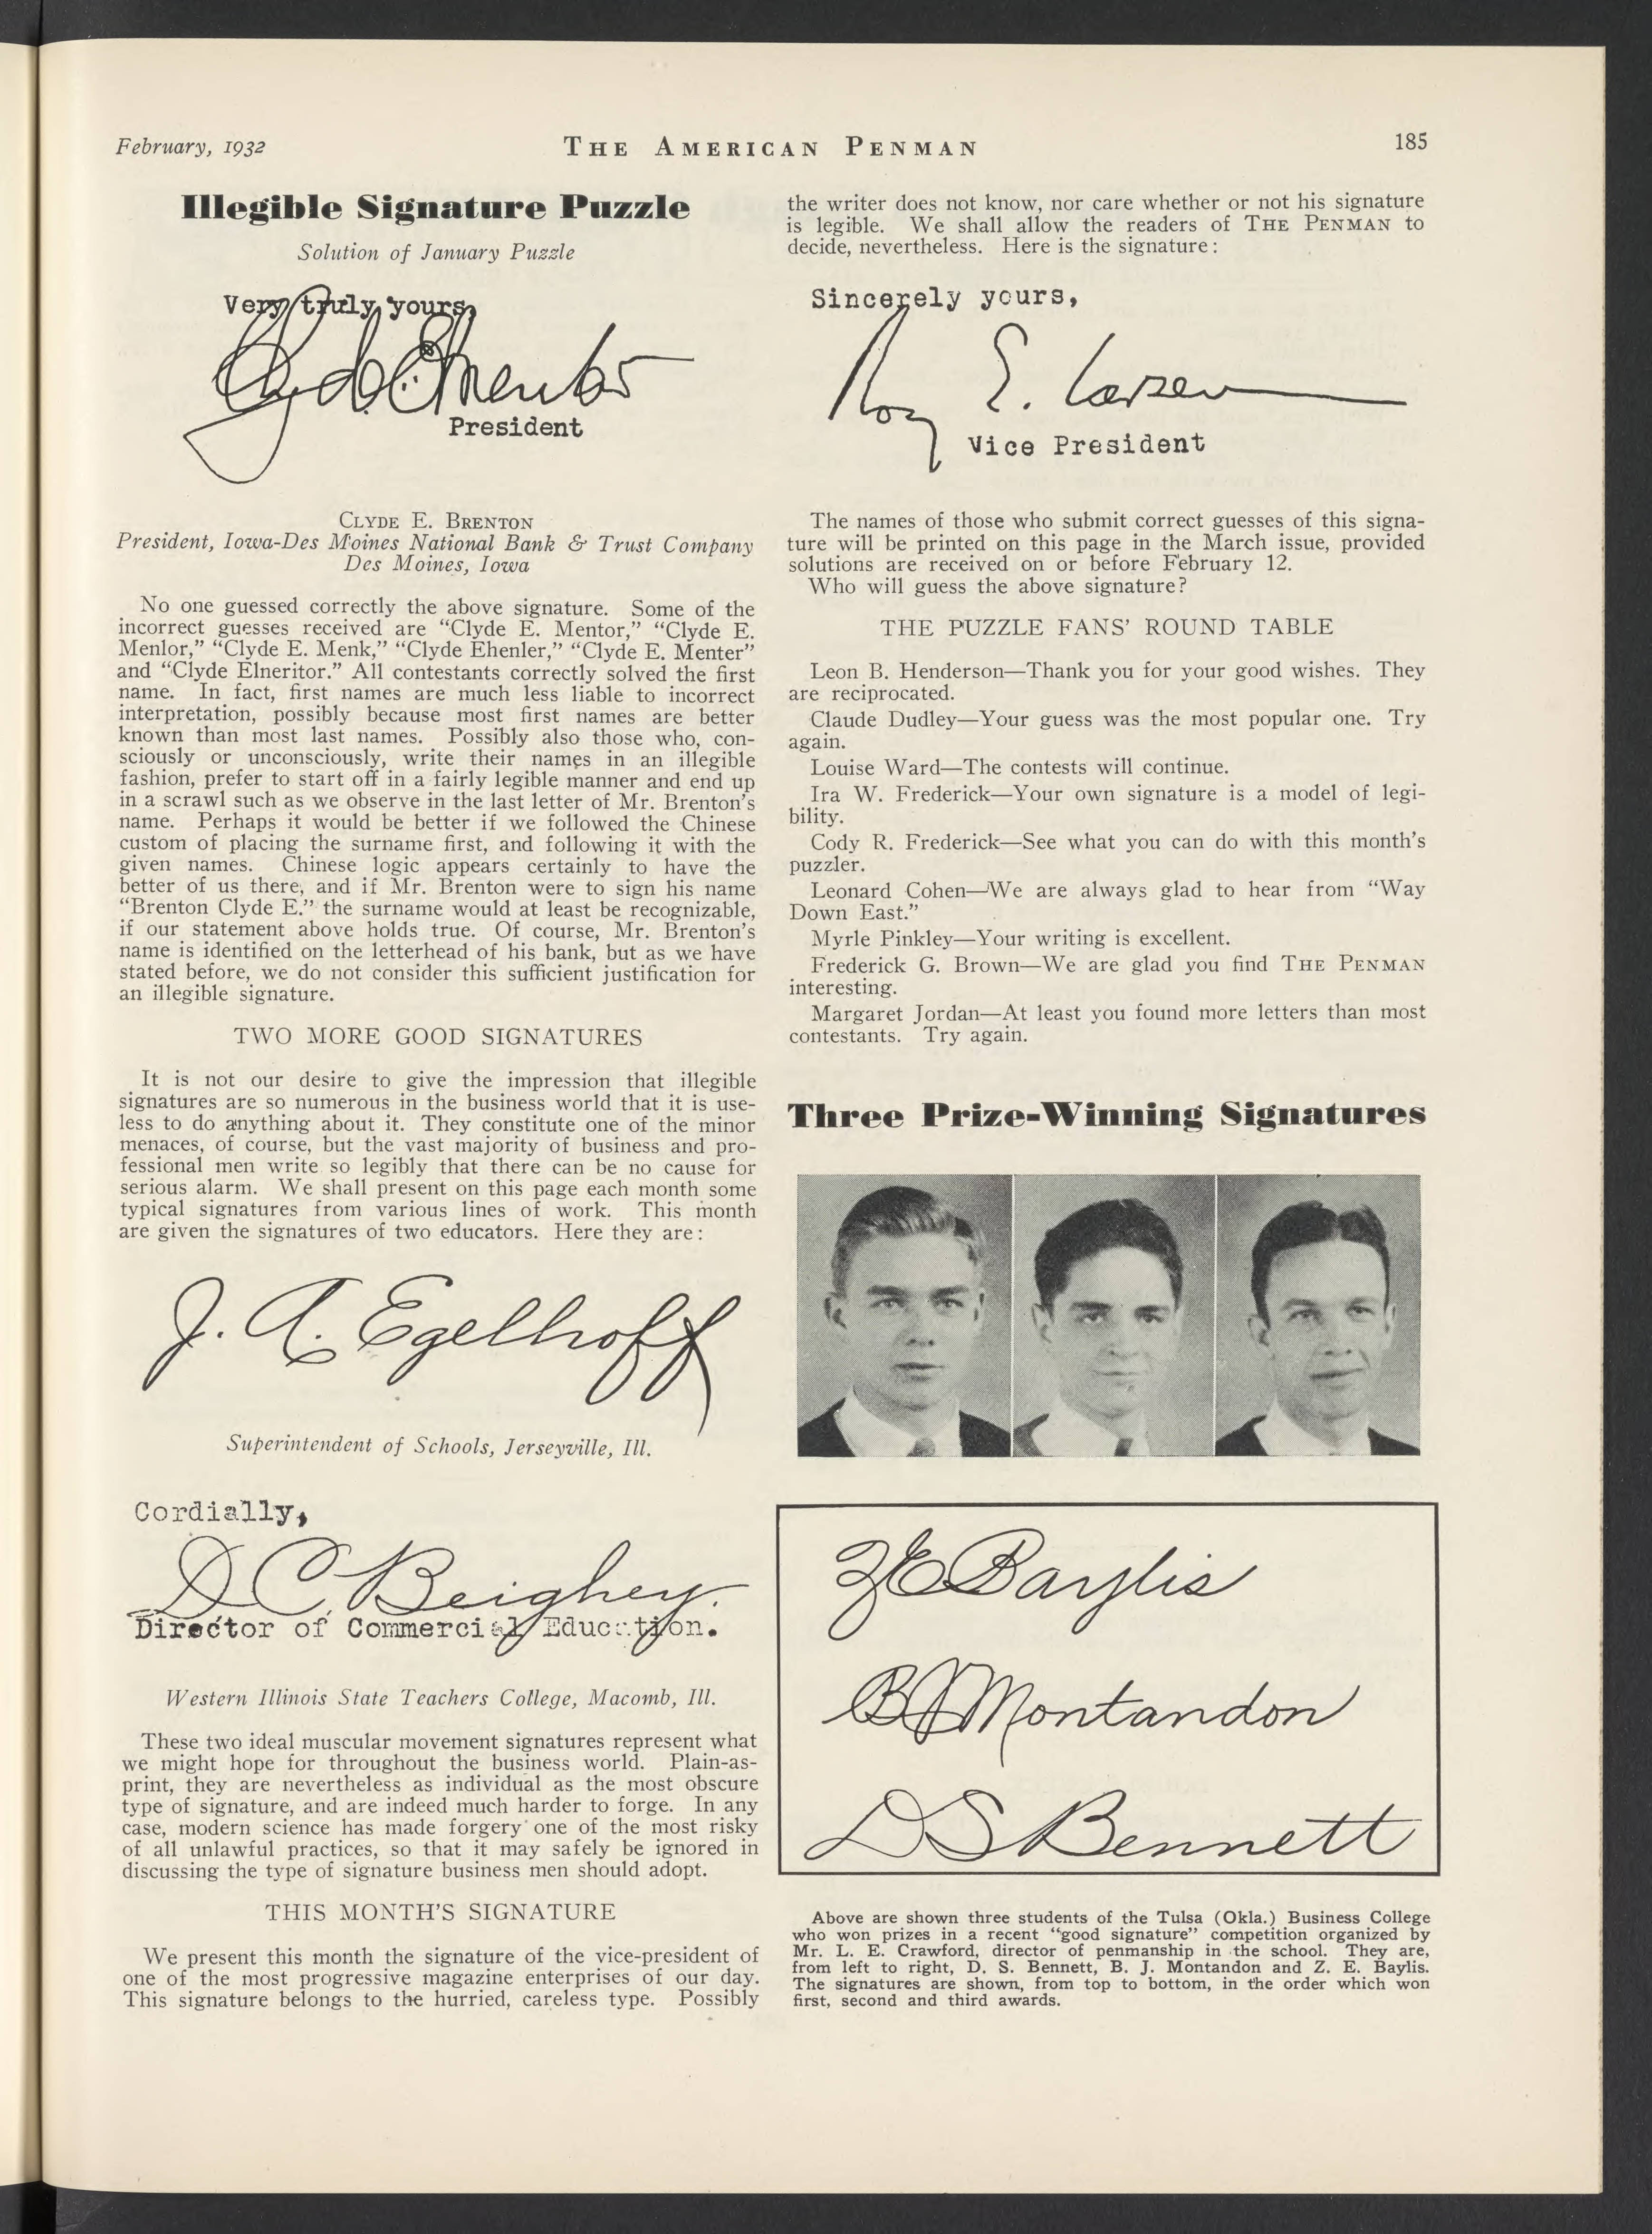 February, 1932
THE AMERICAN PENMAN
185
Illegible Signature Puzzle
Solution of January Puzzle
Very truly yours,
Clyde E. Brenton
President
CLYDE E. BRENTON
President, Iowa-Des Moines National Bank & Trust Company
Des Moines, Iowa
No one guessed correctly the above signature. Some of the
incorrect guesses received are “Clyde E. Mentor,” “Clyde E.
Menlor,” “Clyde E. Menk,” “Clyde Ehenler,” “Clyde E. Menter”
and “Clyde Elneritor.” All contestants correctly solved the first
name. In fact, first names are much less liable to incorrect
interpretation, possibly because most first names are better
known than most last names. Possibly also those who, con-
sciously or unconsciously, write their names in an illegible
fashion, prefer to start off in a fairly legible manner and end up
in a scrawl such as we observe in the last letter of Mr. Brenton’s
name. Perhaps it would be better if we followed the Chinese
custom of placing the surname first, and following it with the
given names. Chinese logic appears certainly to have the
better of us there, and if Mr. Brenton were to sign his name
“Brenton Clyde E.” the surname would at least be recognizable,
if our statement above holds true. Of course, Mr. Brenton’s
name is identified on the letterhead of his bank, but as we have
stated before, we do not consider this sufficient justification for
an illegible signature.
TWO MORE GOOD SIGNATURES
It is not our desire to give the impression that illegible
signatures are so numerous in the business world that it is use-
less to do anything about it. They constitute one of the minor
menaces, of course, but the vast majority of business and pro-
fessional men write so legibly that there can be no cause for
serious alarm. We shall present on this page each month some
typical signatures from various lines of work. This month
are given the signatures of two educators. Here they are:
J. A. Egelhoff
Superintendent of Schools, Jerseyville, Ill.
Cordially,
D C Beighey.
Director of Commercial Education.
Western Illinois State Teachers College, Macomb, Ill.
These two ideal muscular movement signatures represent what
we might hope for throughout the business world. Plain-as-
print, they are nevertheless as individual as the most obscure
type of signature, and are indeed much harder to forge. In any
case, modern science has made forgery one of the most risky
of all unlawful practices, so that it may safely be ignored in
discussing the type of signature business men should adopt.
THIS MONTH’S SIGNATURE
We present this month the signature of the vice-president of
one of the most progressive magazine enterprises of our day.
This signature belongs to the hurried, careless type. Possibly
the writer does not know, nor care whether or not his signature
is legible. We shall allow the readers of THE PENMAN to
decide, nevertheless. Here is the signature:
Sincerely yours,
Roy E. Larsen
Vice President
The names of those who submit correct guesses of this signa-
ture will be printed on this page in the March issue, provided
solutions are received on or before February 12.
Who will guess the above signature?
THE PUZZLE FANS’ ROUND TABLE
Leon B. Henderson—Thank you for your good wishes. They
are reciprocated.
Claude Dudley—Your guess was the most popular one. Try
again.
Louise Ward—The contests will continue.
Ira W. Frederick—Your own signature is a model of legi-
bility.
Cody R. Frederick—See what you can do with this month’s
puzzler.
Leonard Cohen—We are always glad to hear from “Way
Down East.”
Myrle Pinkley—Your writing is excellent.
Frederick G. Brown—We are glad you find THE PENMAN
interesting.
Margaret Jordan—At least you found more letters than most
contestants. Try again.
Three Prize-Winning Signatures
Z E Baylis
B J Montandon
D S Bennett
Above are shown three students of the Tulsa (Okla.) Business College
who won prizes in a recent “good signature” competition organized by
Mr. L. E. Crawford, director of penmanship in the school. They are,
from left to right, D. S. Bennett, B. J. Montandon and Z. E. Baylis.
The signatures are shown, from top to bottom, in the order which won
first, second and third awards.